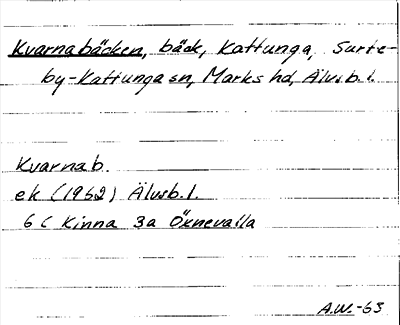 Kvarnabäcken, bäck, Kattunga, Surte-
by-Kattunga sn, Marks hd, Älvsb. l.
Kvarnab.
ek (1962) Älvsb. l.
6 C Kinna 3a Öknevalla
A.W.-63